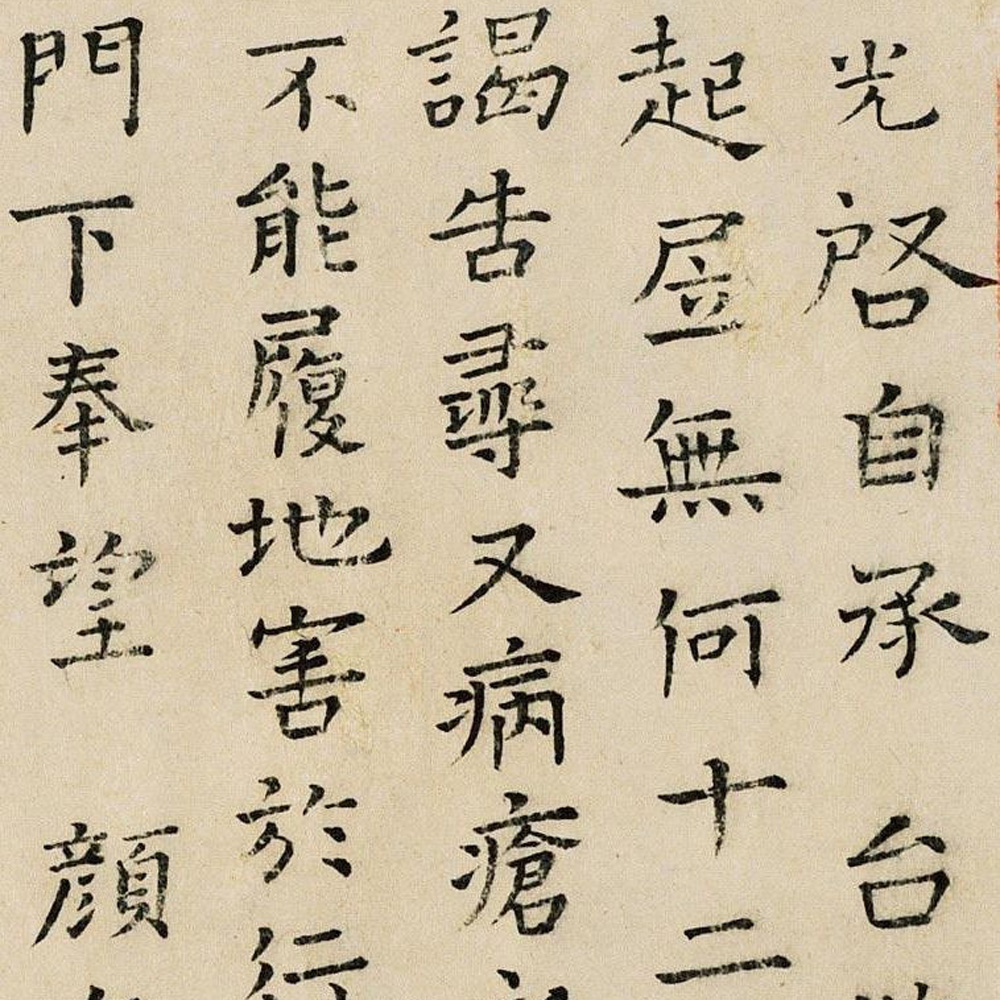 光啓自承台
起㞐無何十二
謁告尋又病瘡
不能履地害於
門下奉望顔